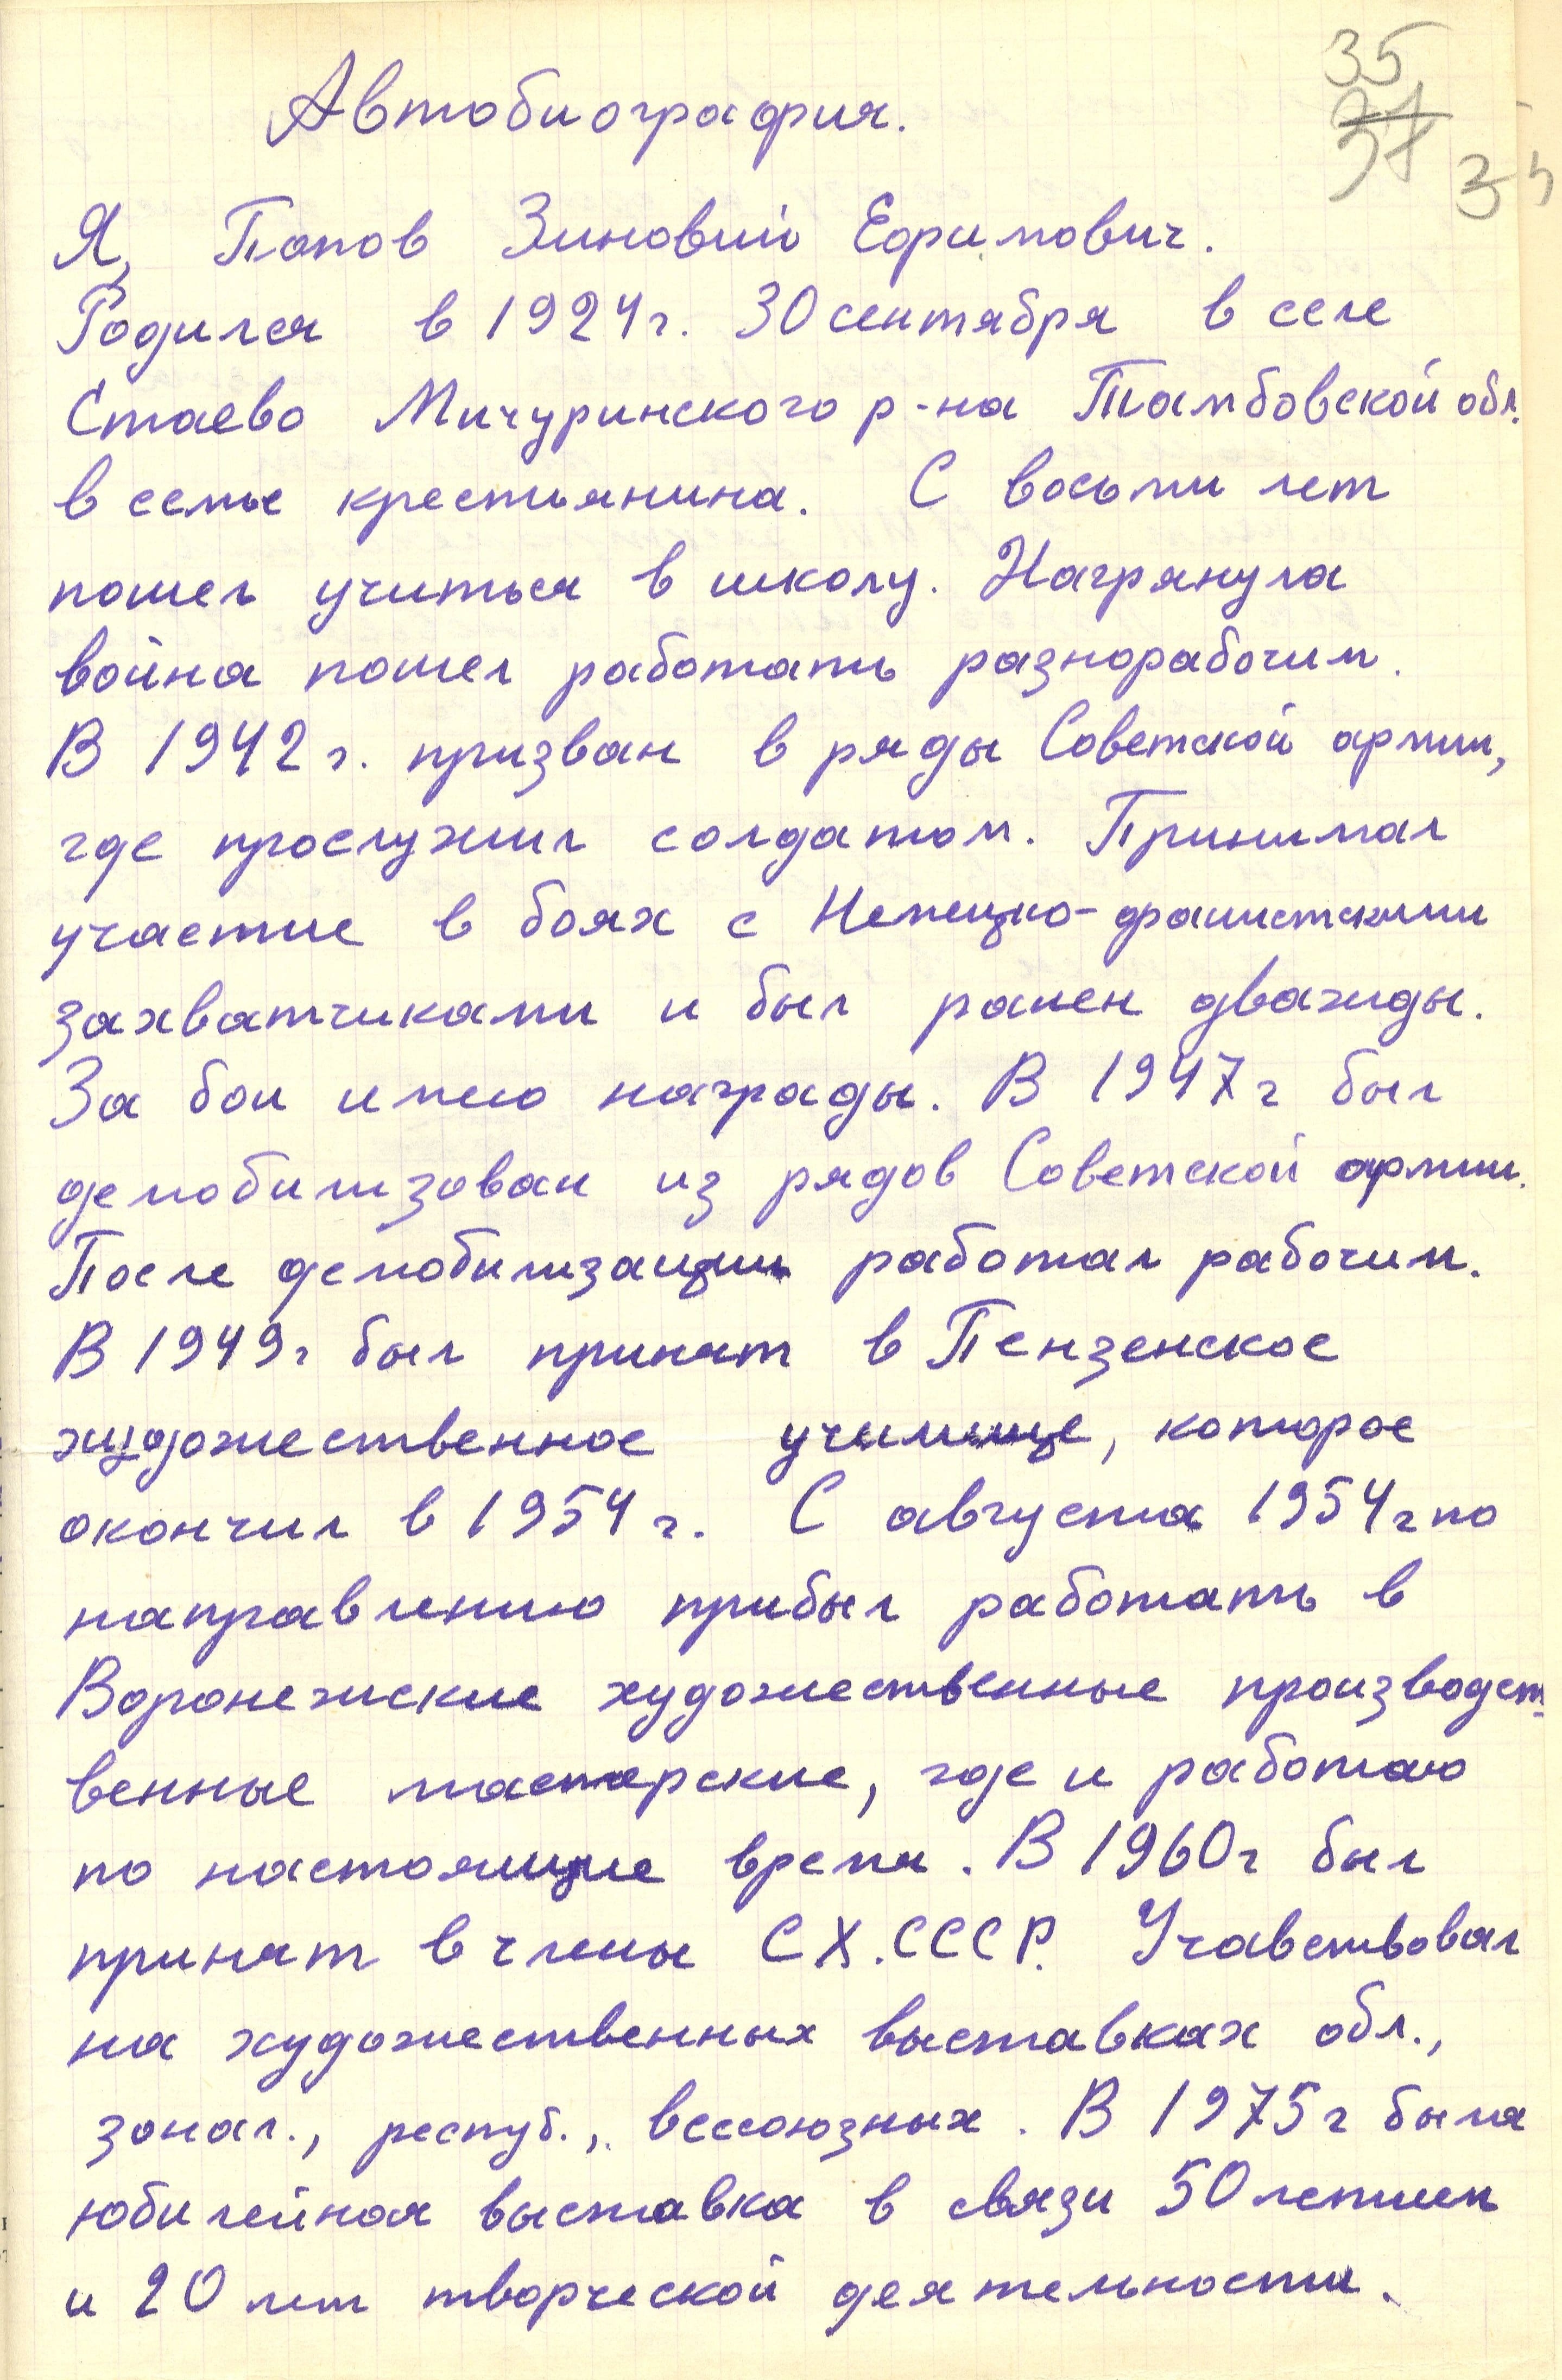 35
37
35
Автобиография.
Я, Попов Зиновий Ефимович.
Родился в 1924г. 30 сентября в селе
Стаево Мичуринского р-на Тамбовской обл.
в семье крестьянина. С восьми лет
пошел учиться в школу. Нагрянула
война пошел работать разнорабочим.
В 1942 г. призван в ряды Советской армии,
где прослужил солдатом. Принимал
участие в боях с Немецко-фашистскими
захватчиками и был ранен дважды.
За бои имею награды. В 1947г был
демобилизован из рядов Советской армии.
После демобилизации работал рабочим.
В 1949г был принят в Пензенское
художественное училище, которое
окончил в 1954 г. С августа 1954г по
направлению прибыл работать в
Воронежские художественные производст-
венные мастерские, где и работаю
по настоящие время. В 1960г был
принят в члены СХ.СССР. Учавствовал
на художественных выставках обл.,
зонал., респуб., всесоюзных. В 1975г была
юбилейная выставка в связи 50летием
и 20 лет творческой деятельности.